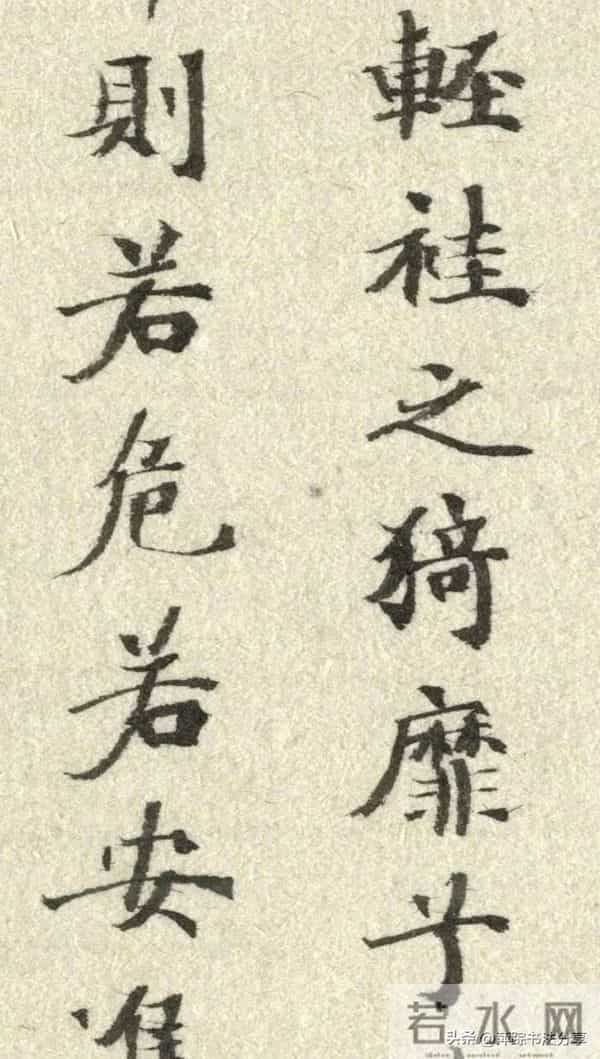 輕袿之猗靡兮
則若危若安
若水网
头条 @萍踪书法分享